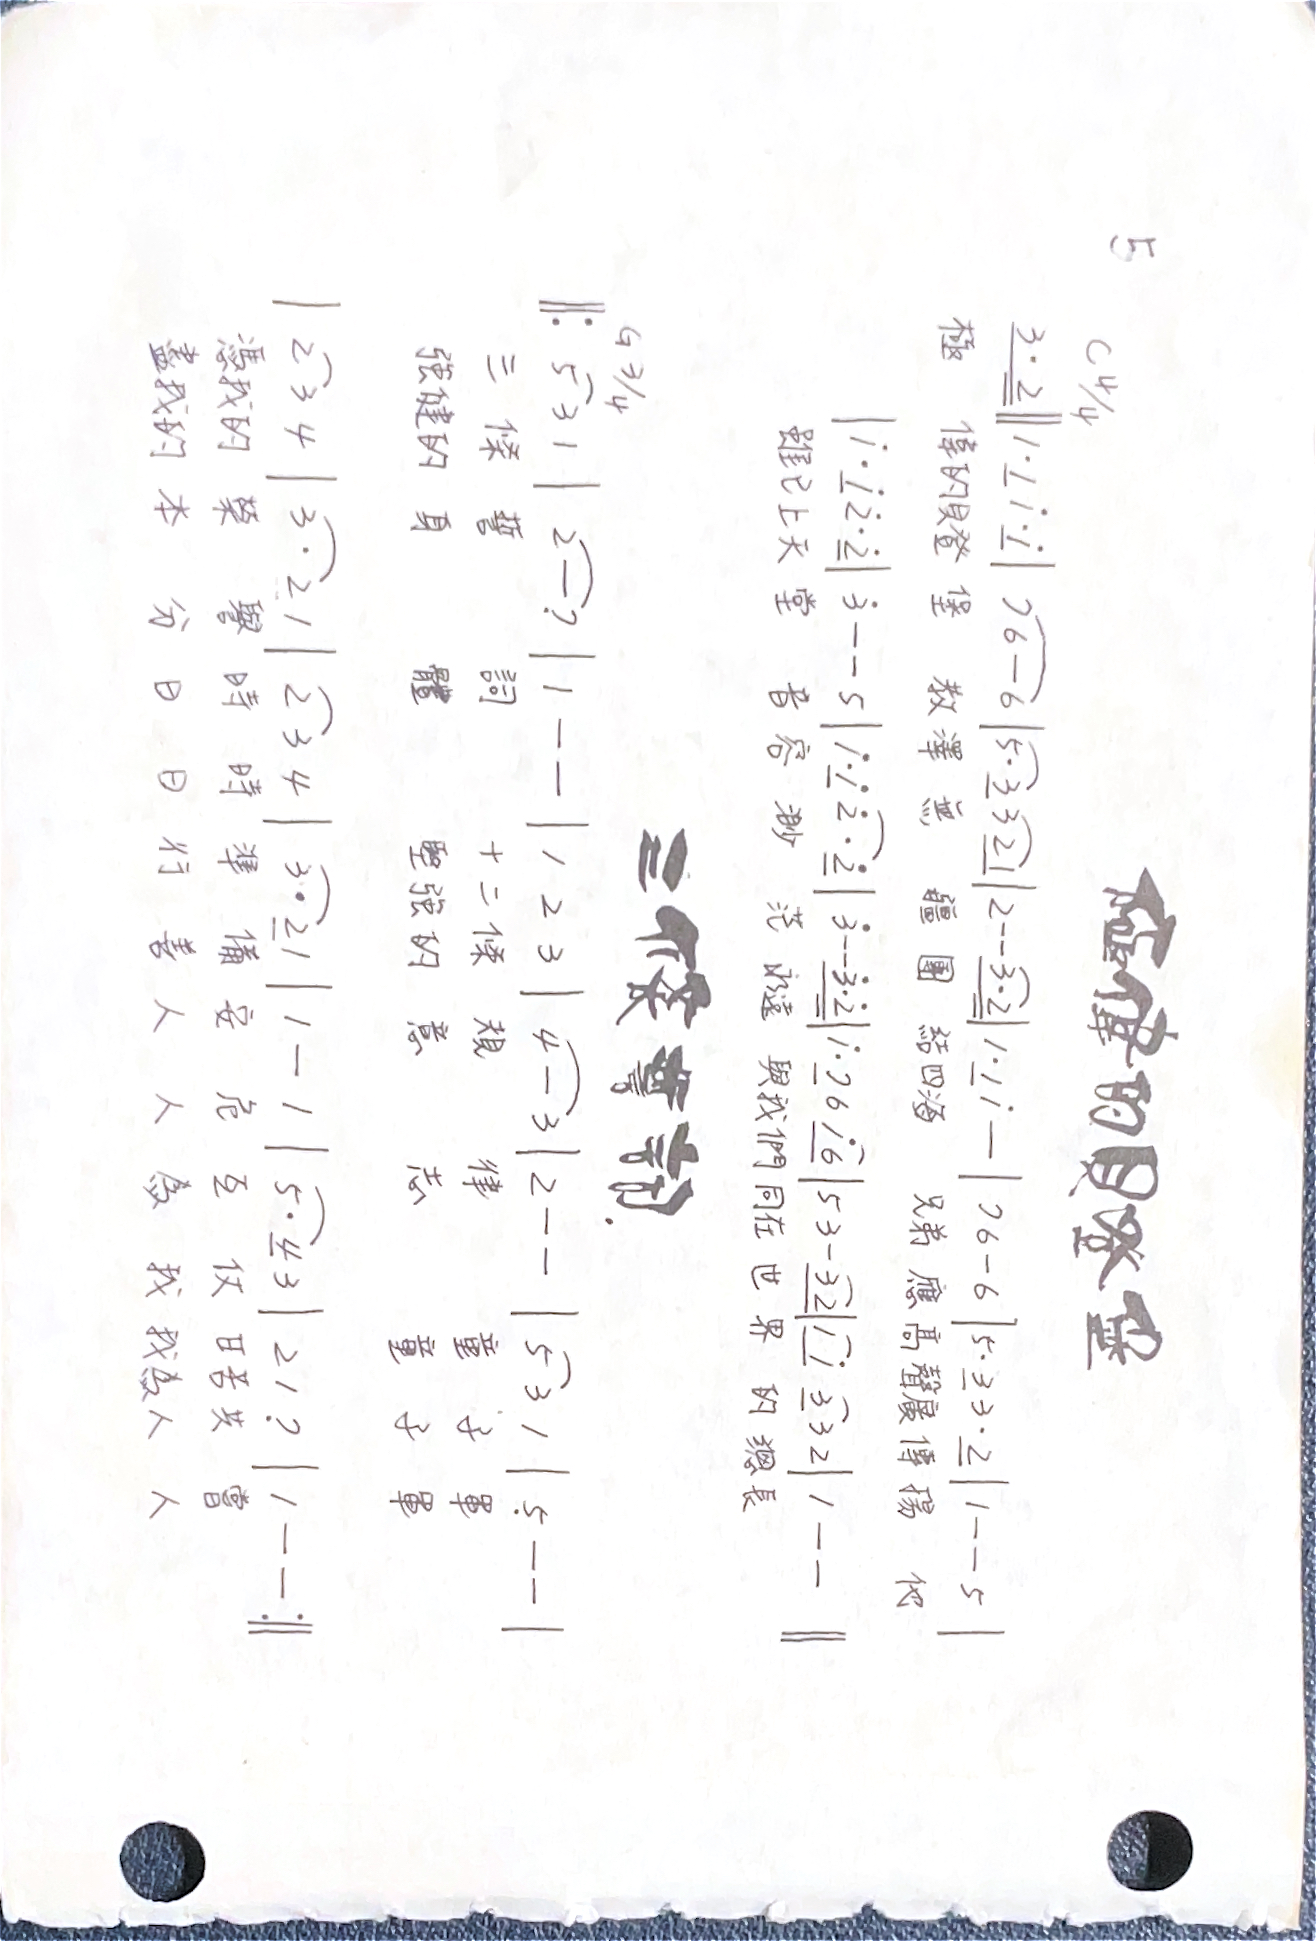 5
極偉的貝登堡
C 4/4
3·2‖1·1 i·i| 76—6|5·3 321|2--3·2|1·1i—|76-6|5·33·2|1--5|
極 偉的貝登堡 教澤無 疆團 結四海 兄弟應高聲廣傳揚 他
|i·i2̇·2̇|3̇--5|i·i2̇·2̇|3̇--3̇·2̇|i·76i6|53-32|1i332|1-- ‖
雖已上天堂 音容渺 茫 永遠 與我們同在世界 的總長
三條誓詞.
G 3/4
‖: 5 3 1 | 2—7̣ | 1 -- | 1 2 3 | 4-3 | 2-- | 5 3 1 | 5̣-- |
三條誓 詞 十二條 規 律 童 子 軍
強健的 身 體 堅強的 意 志 童 子 軍
| 2 3 4 | 3·2 1 | 2 3 4 | 3·2 1 | 1 — 1 | 5·4 3 | 2 1 7̣ | 1--:‖
憑我的 榮 譽 時 時 準 備 安 危 互 仗 甘苦共 嘗
盡我的 本 分 日 日 行 善 人 人 為 我 我為人 人